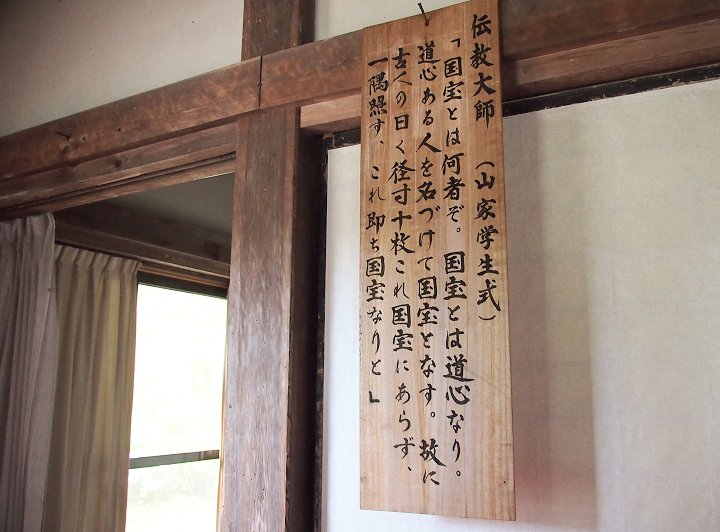 伝教大師 (山家学生式)
「国宝とは何者ぞ。国宝とは道心なり。
道心ある人を名づけて国宝となす。故に
古人の曰く径寸十枚これ国宝にあらず、
一隅照す、これ即ち国宝なりと」